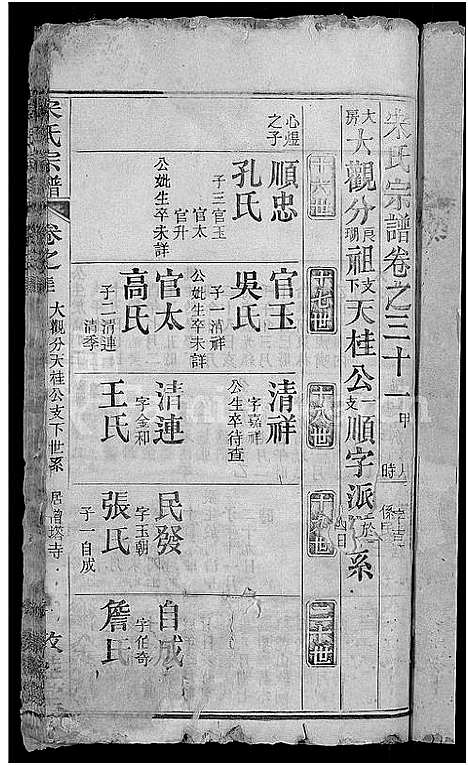 宋氏宗譜卷之三十一
大房大觀分長瑚祖支下天桂公一支順字派世系
十六世
十七世
十八世
十九世
二十世
心煜之子
順忠
孔氏
子三官玉
官太
官升
公妣生卒未詳
官玉
吳氏
子一清祥
公妣生卒未詳
官太
高氏
子二清連
清季
清祥
字嘉祥
公生卒待查
清連
王氏
字金和
民發
張氏
字玉朝
子一自成
自成
詹氏
字伯奇
宋氏宗譜
卷之三
大觀分天桂公支下世系
居僧塔寺